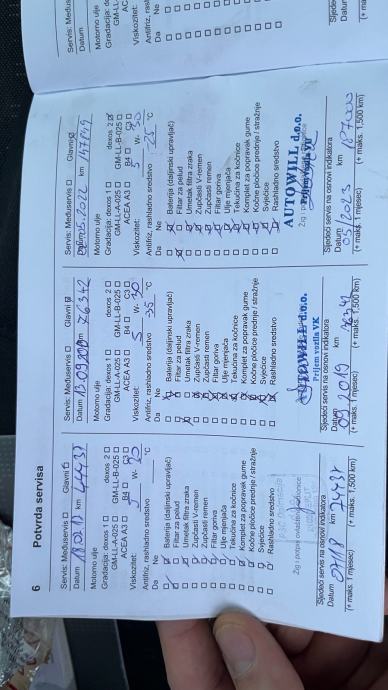 6 Potvrda servisa
Servis: Međuservis ☐ Glavni ☐
Datum km 44437
Motorno ulje
Gradacija: dexos 1 ☐ dexos 2 ☐
GM-LL-A-025 ☐ GM-LL-B-025 ☐
ACEA A3 ☐ B4 ☐ C3 ☐
Viskozitet: W-
Antifriz, rashladno sredstvo °C
Da Ne
Baterija (daljinski upravljač)
Filtar za pelud
Umetak filtra zraka
Zupčasti V-remen
Zupčasti remen
Filtar goriva
Ulje mjenjača
Tekućina za kočnice
Komplet za popravak gume
Kočne pločice prednje / stražnje
Svjećice
Rashladno sredstvo
Žig i potpis ovlaštene radionice
Sljedeći servis na osnovi indikatora
Datum km
07/18 74437
(+ maks. 1 mjesec) (+ maks. 1,500 km)
Servis: Međuservis ☐ Glavni ☒
Datum 13.09.2018 km 76342
Motorno ulje
Gradacija: dexos 1 ☐ dexos 2 ☐
GM-LL-A-025 ☐ GM-LL-B-025 ☐
ACEA A3 ☐ B4 ☐ C3 ☐
Viskozitet: 5 W- 30
Antifriz, rashladno sredstvo -35 °C
Da Ne
Baterija (daljinski upravljač)
Filtar za pelud
Umetak filtra zraka
Zupčasti V-remen
Zupčasti remen
Filtar goriva
Ulje mjenjača
Tekućina za kočnice
Komplet za popravak gume
Kočne pločice prednje / stražnje
Svjećice
Rashladno sredstvo
AUTOWILL d.o.o.
Prijem vozila VK
Sljedeći servis na osnovi indikatora
Datum km
09/2019
(+ maks. 1 mjesec) (+ maks. 1,500 km)
Servis: Međuservis ☐ Glavni ☒
Datum 05.2022 km 147849
Motorno ulje
Gradacija: dexos 1 ☐ dexos 2 ☒
GM-LL-A-025 ☐ GM-LL-B-025 ☐
ACEA A3 ☐ B4 ☐ C3 ☐
Viskozitet: 5 W- 30
Antifriz, rashladno sredstvo -25 °C
Da Ne
Baterija (daljinski upravljač)
Filtar za pelud
Umetak filtra zraka
Zupčasti V-remen
Zupčasti remen
Filtar goriva
Ulje mjenjača
Tekućina za kočnice
Komplet za popravak gume
Kočne pločice prednje / stražnje
Svjećice
Rashladno sredstvo
AUTOWILL d.o.o.
Prijem vozila VK
Sljedeći servis na osnovi indikatora
Datum km
05/2023
(+ maks. 1 mjesec) (+ maks. 1,500 km)
Servis: Međuservis
Datum
Motorno ulje
Gradacija: dexos
GM-LL-A
ACE
Viskozitet:
Antifriz, ras
Da
Sljedeći
Datum
(+ m